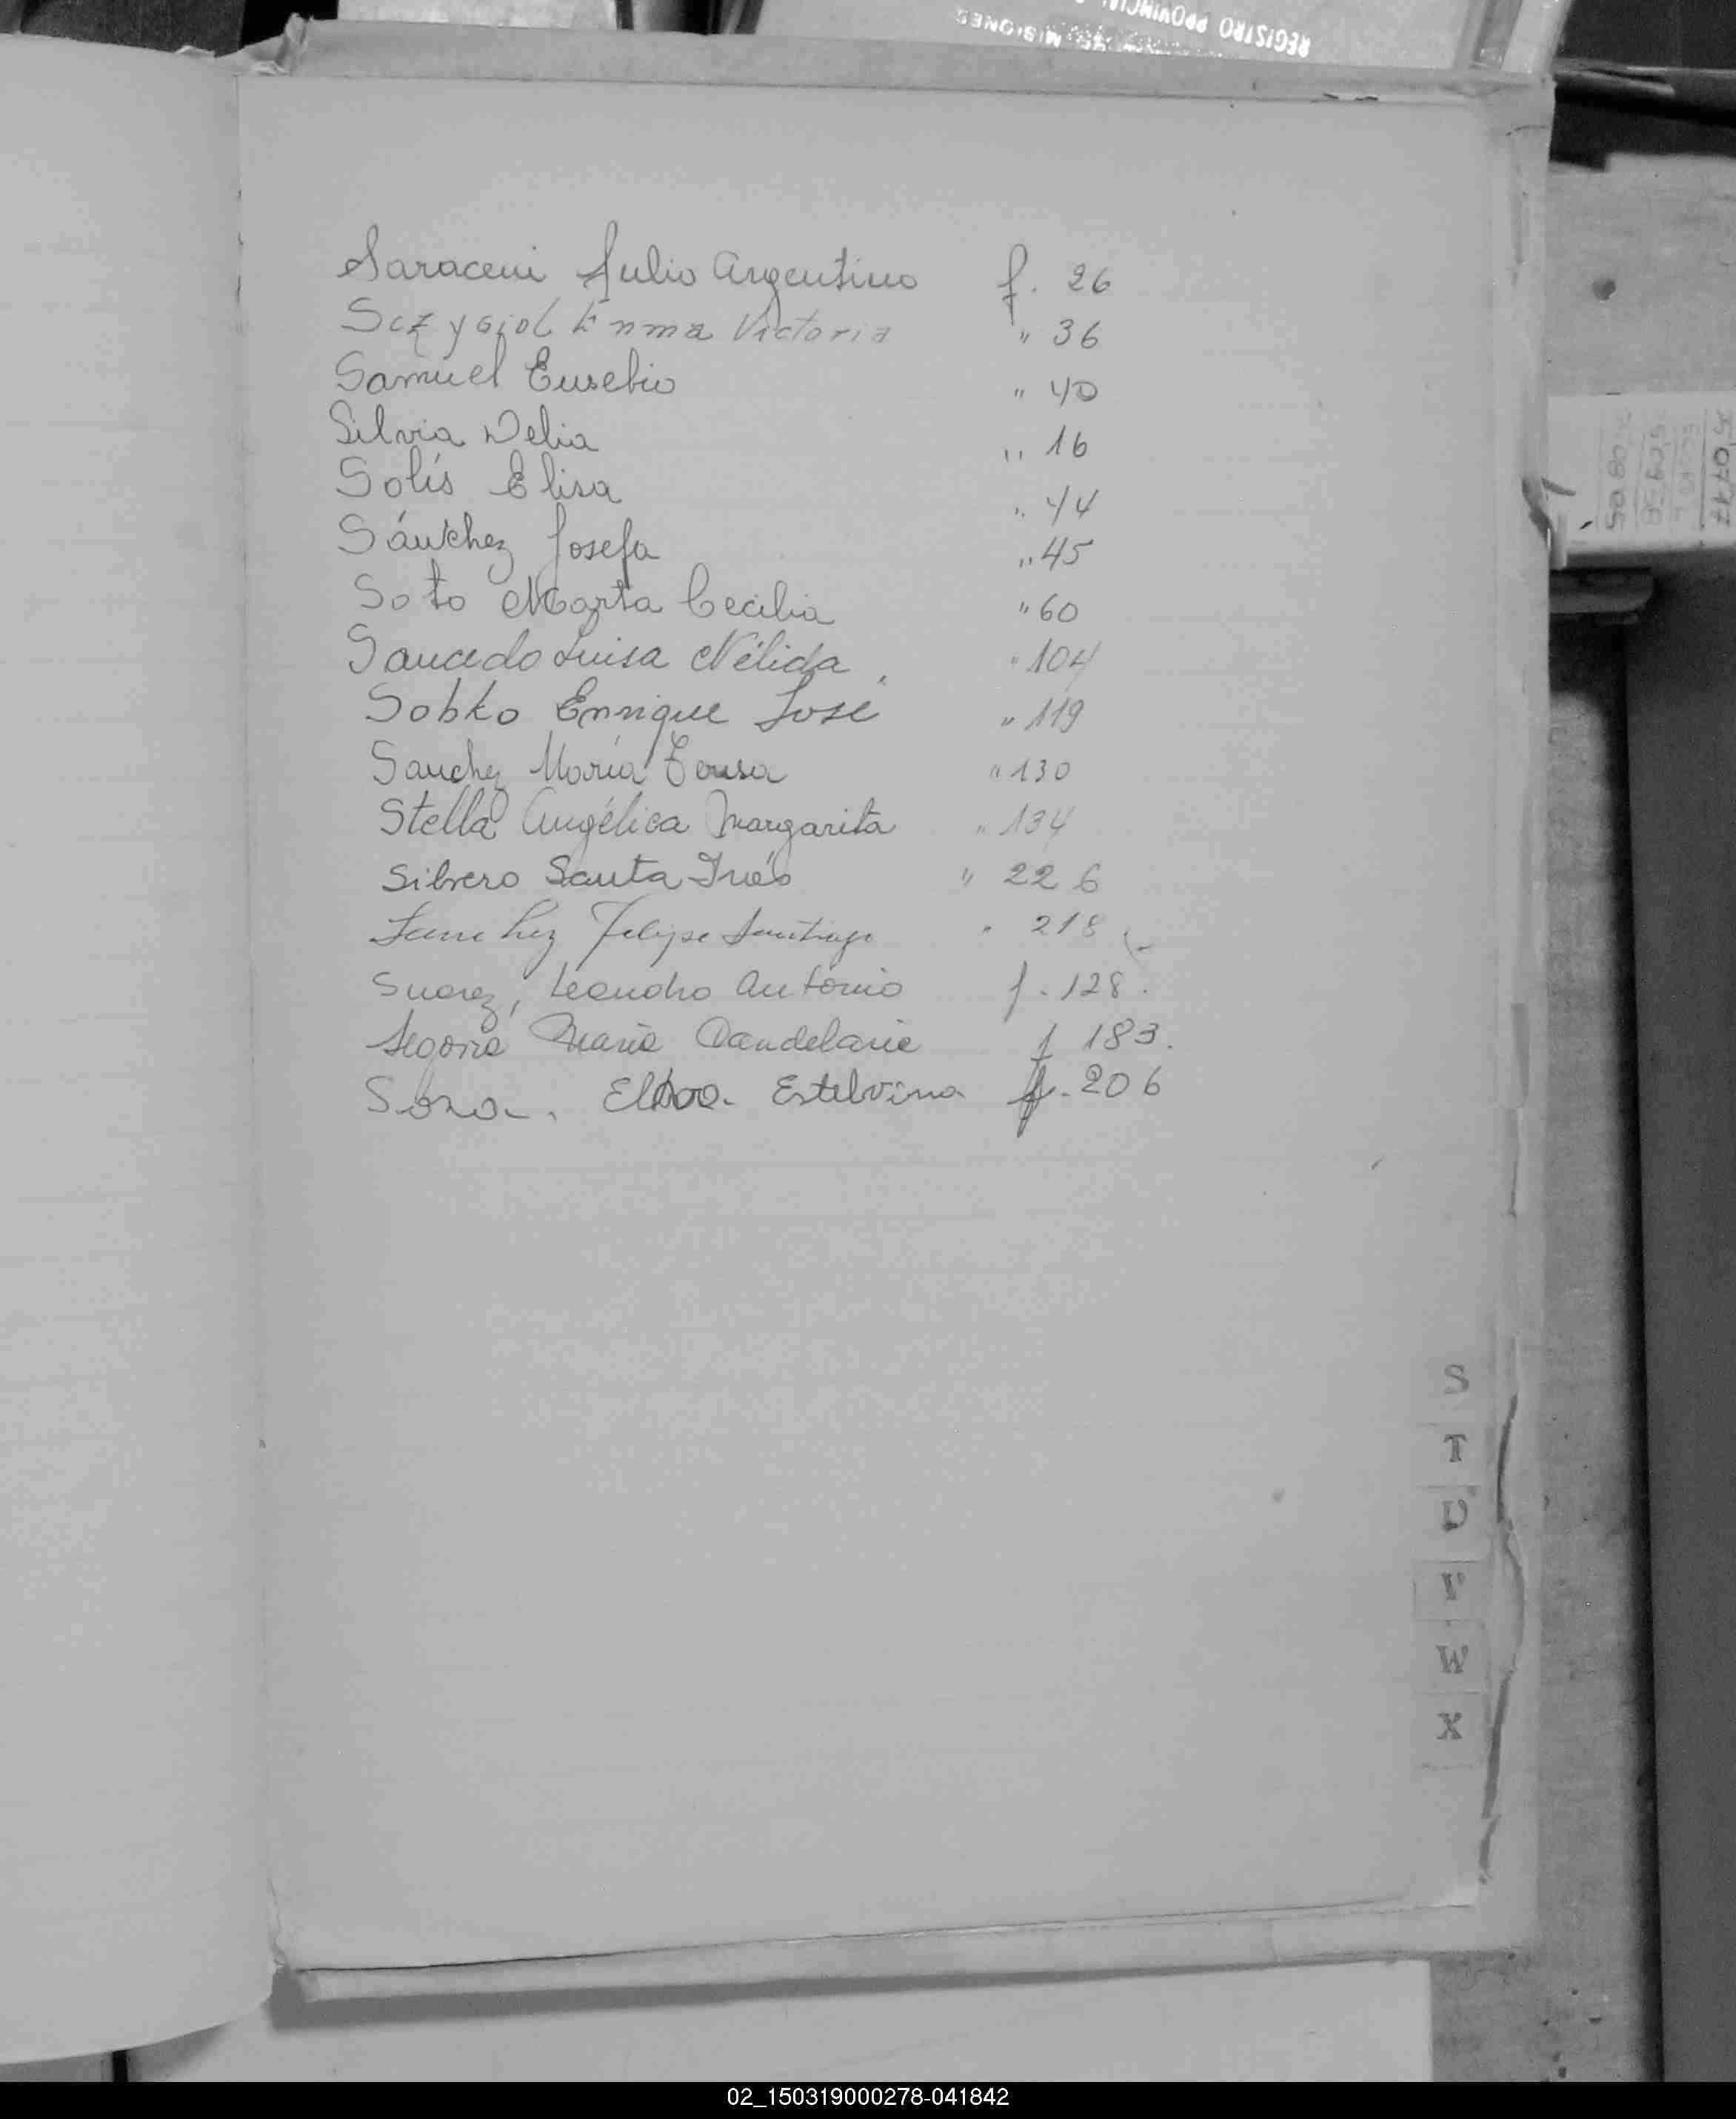 REGISTRO PROVINCIAL
MISIONES
Saraceni Julio Argentino f. 26
Sczygiol Enma Victoria " 36
Samuel Eusebio " 40
Silvia Delia " 16
Solís Elisa " 44
Sánchez Josefa " 45
Soto Marta Cecilia " 60
Saucedo Luisa Nélida " 104
Sobko Enrique José " 119
Sanchez María Teresa " 130
Stella Angélica Margarita " 134
Silvero Santa Inés " 226
Sanchez Felipe Santiago " 218
Suarez, Leandro Antonio f. 128.
Segovia María Candelaria f 183.
Sosa. Estelvina f. 206
S
T
U
V
W
X
02_150319000278-041842